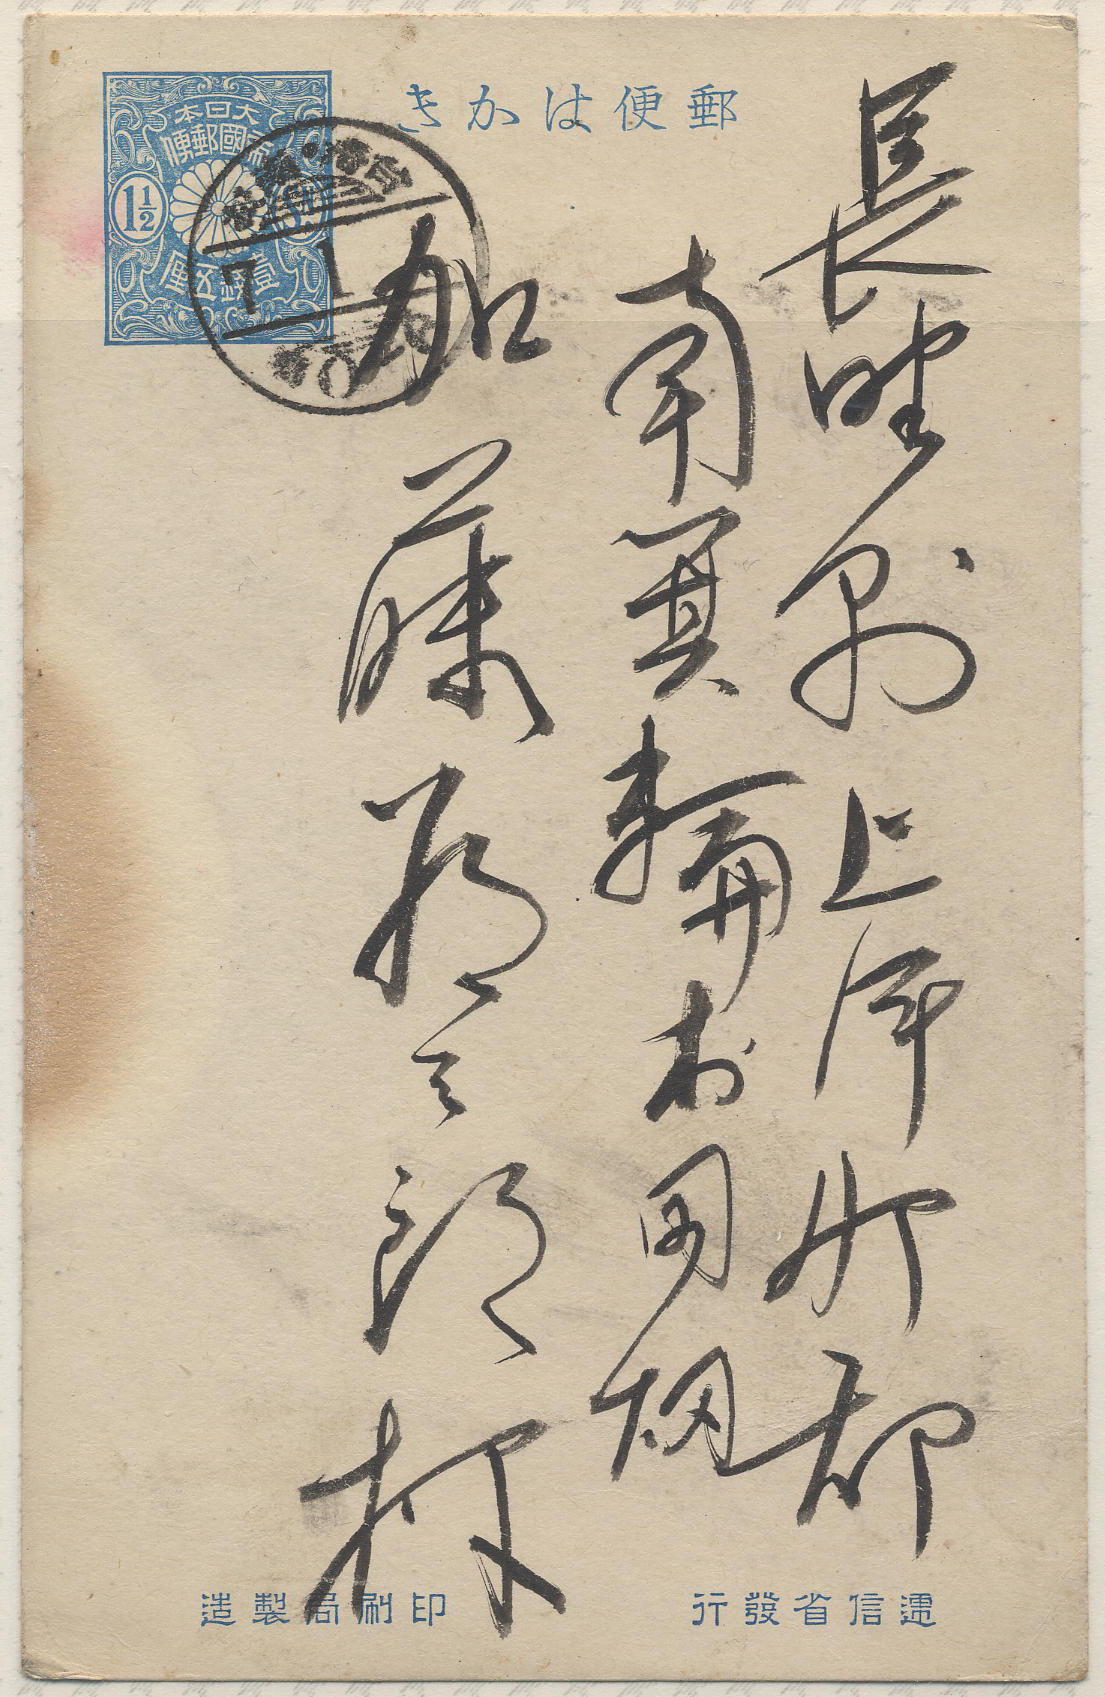 郵便はかき
大日本
帝國郵便
1½
壹錢五厘
7 1
長野県上伊那郡
南箕輪村田畑
加藤
郎様
逓信省發行
印刷局製造